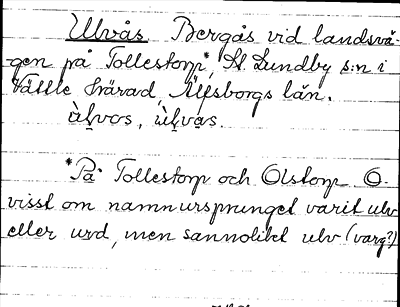 Ulvås Bergås vid landsvä-
gen på Tollestorp*, St. Lundby s:n i
Vättle härad, Älfsborgs län.
ùḷvos, ùḷvas.
*På Tollestorp och Olstorp O-
visst om namnursprunget varit ulv
eller urd, men sannolikt ulv (varg?)